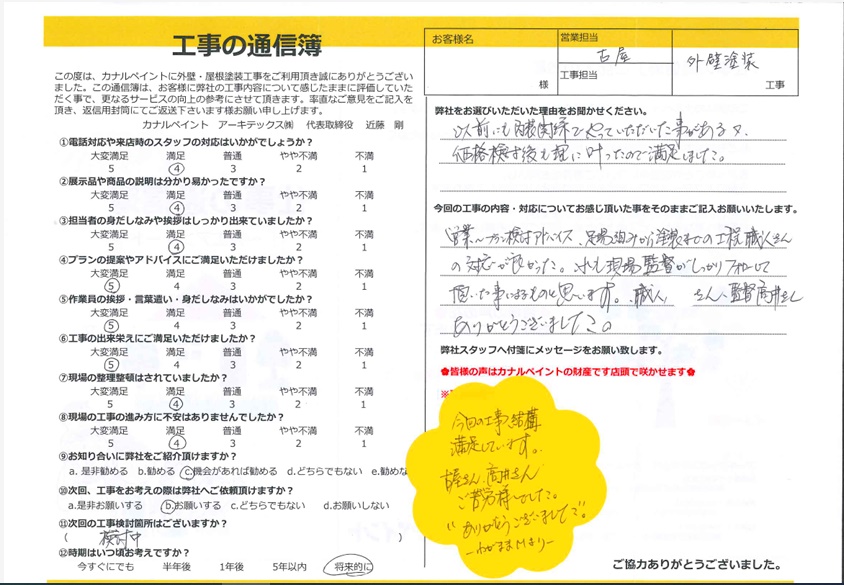 工事の通信簿
この度は、カナルペイントに外壁・屋根塗装工事をご利用頂き誠にありがとうござい
ました。この通信簿は、お客様に弊社の工事内容について感じたままに評価していた
だく事で、更なるサービスの向上の参考にさせて頂きます。率直なご意見をご記入を
頂き、返信用封筒にてご返送下さいます様お願い申し上げます。
カナルペイント アーキテックス㈱ 代表取締役 近藤 剛
①電話対応や来店時のスタッフの対応はいかがでしょうか?
大変満足 満足 普通 やや不満 不満
5 4 3 2 1
②展示品や商品の説明は分かり易かったですか?
大変満足 満足 普通 やや不満 不満
5 4 3 2 1
③担当者の身だしなみや挨拶はしっかり出来ていましたか?
大変満足 満足 普通 やや不満 不満
5 4 3 2 1
④プランの提案やアドバイスにご満足いただけましたか?
大変満足 満足 普通 やや不満 不満
5 4 3 2 1
⑤作業員の挨拶・言葉遣い・身だしなみはいかがでしたか?
大変満足 満足 普通 やや不満 不満
5 4 3 2 1
⑥工事の出来栄えにご満足いただけましたか?
大変満足 満足 普通 やや不満 不満
5 4 3 2 1
⑦現場の整理整頓はされていましたか?
大変満足 満足 普通 やや不満 不満
5 4 3 2 1
⑧現場の工事の進み方に不安はありませんでしたか?
大変満足 満足 普通 やや不満 不満
5 4 3 2 1
⑨お知り合いに弊社をご紹介頂けますか?
a. 是非勧める b.勧める c.機会があれば勧める d.どちらでもない e.勧めな
⑩次回、工事をお考えの際は弊社へご依頼頂けますか?
a.是非お願いする b.お願いする c.どちらでもない d.お願いしない
⑪次回の工事検討箇所はございますか?
( 検討中 )
⑫時期はいつ頃お考えですか?
今すぐにでも 半年後 1年後 5年以内 将来的に
お客様名
様
営業担当
古屋
工事担当
外壁塗装
工事
弊社をお選びいただいた理由をお聞かせください。
以前にも内装関係でやっていただいた事がある
価格検討後も理に叶ったので満足しました。
今回の工事の内容・対応についてお感じ頂いた事をそのままご記入お願いいたします。
営業〜プラン検討アドバイス、足場組みから塗装までの工程職人さん
の対応が良かった。これも現場監督がしっかりフォローして
頂いた事によるものと思います。職人 さん、監督高井さん
ありがとうございました。
弊社スタッフへ付箋にメッセージをお願い致します。
✿皆様の声はカナルペイントの財産です店頭で咲かせます✿
今回の工事、結構
満足しています。
古屋さん、高井さん
ご苦労様でした。
"ありがとうございました"。
ーわがままMよりー
ご協力ありがとうございました。